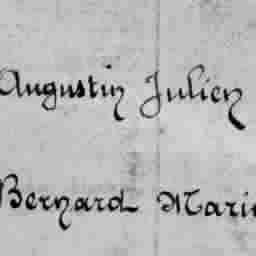 Augustin Julien
Bernard Marie